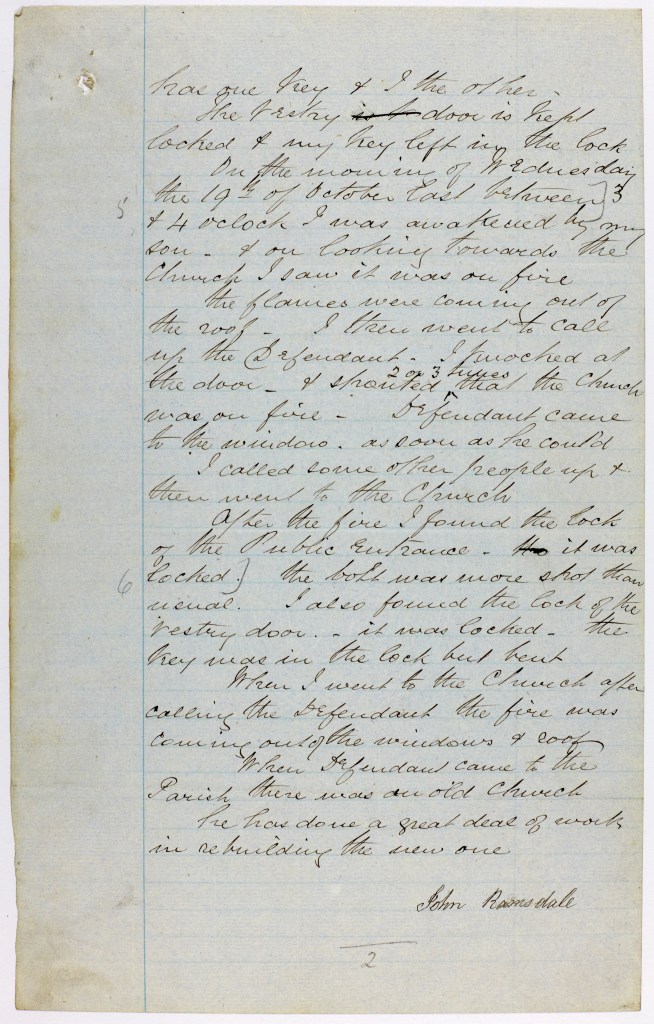 has one key & I the other -
The Vestry is t door is kept
locked & my key left in the lock
On the morning of Wednesday
the 19th of October last between] 3
5
& 4 oclock I was awakened by my
son - & on looking towards the
Church I saw it was on fire
the flames were coming out of
the roof - I then went to call
up the Defendant - I knocked at
2 or 3 times
the door - & shouted that the Church
was on fire - Defendant came
to the window - as soon as he could
I called some other people up &
then went to the Church
After the fire I found the lock
of the Public Entrance - it was
6
locked.] the bolt was more shot than
usual. I also found the lock of the
Vestry door. - it was locked - the
key was in the lock but bent
When I went to the Church after
calling the Defendant the fire was
coming out of the windows & roof
When Defendant came to the
Parish there was an old Church
he has done a great deal of work
in rebuilding the new one
John Ramsdale
2